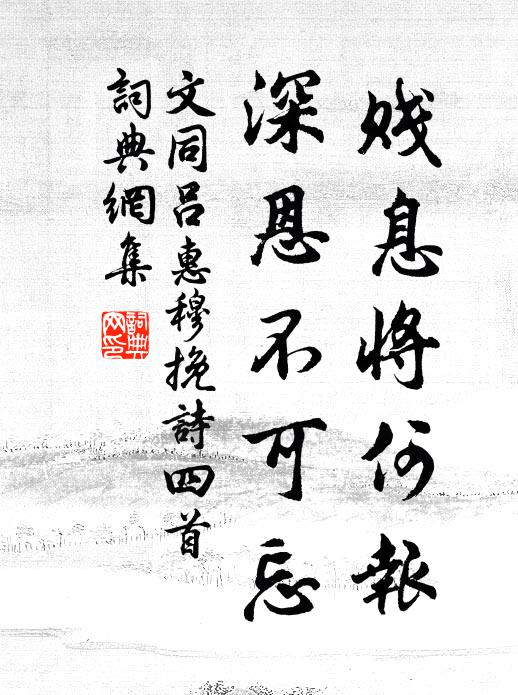 賤息將何報
深恩不可忘
文同呂惠穆挽詩四首
詞典網集
詞典
网印